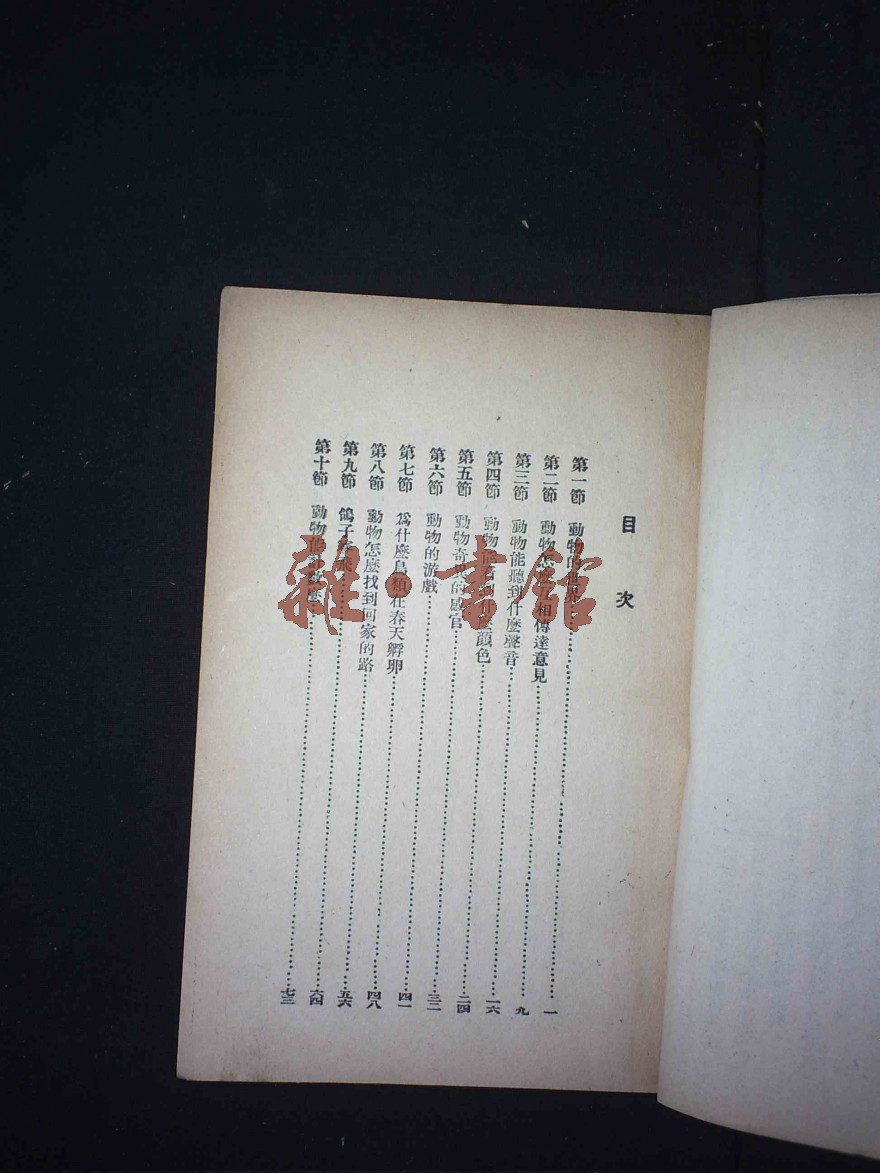 目次
第一節 動物的世界 一
第二節 動物怎麼互相傳達意見 九
第三節 動物能聽到什麼聲音 一六
第四節 動物能看到什麼顏色 二四
第五節 動物奇異的感官 三二
第六節 動物的游戲 四一
第七節 爲什麼鳥類在春天孵卵 四八
第八節 動物怎麼找到回家的路 五六
第九節 鴿子 飛 六四
第十節 動物能計數麼 七三
雜·書館